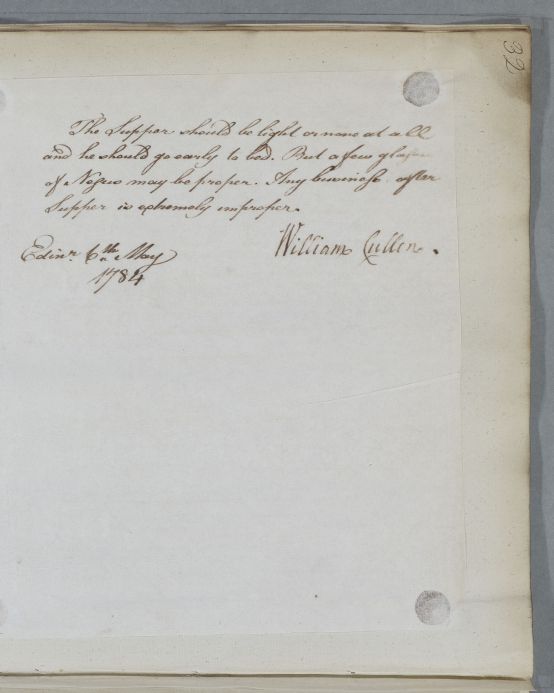 32
The Supper should be light or none at all
and he should go early to bed. But a few glasses
of Negus may be proper. Any business after
Supper is extremely improper.
Edinr. 6th May
1784
William Cullen.